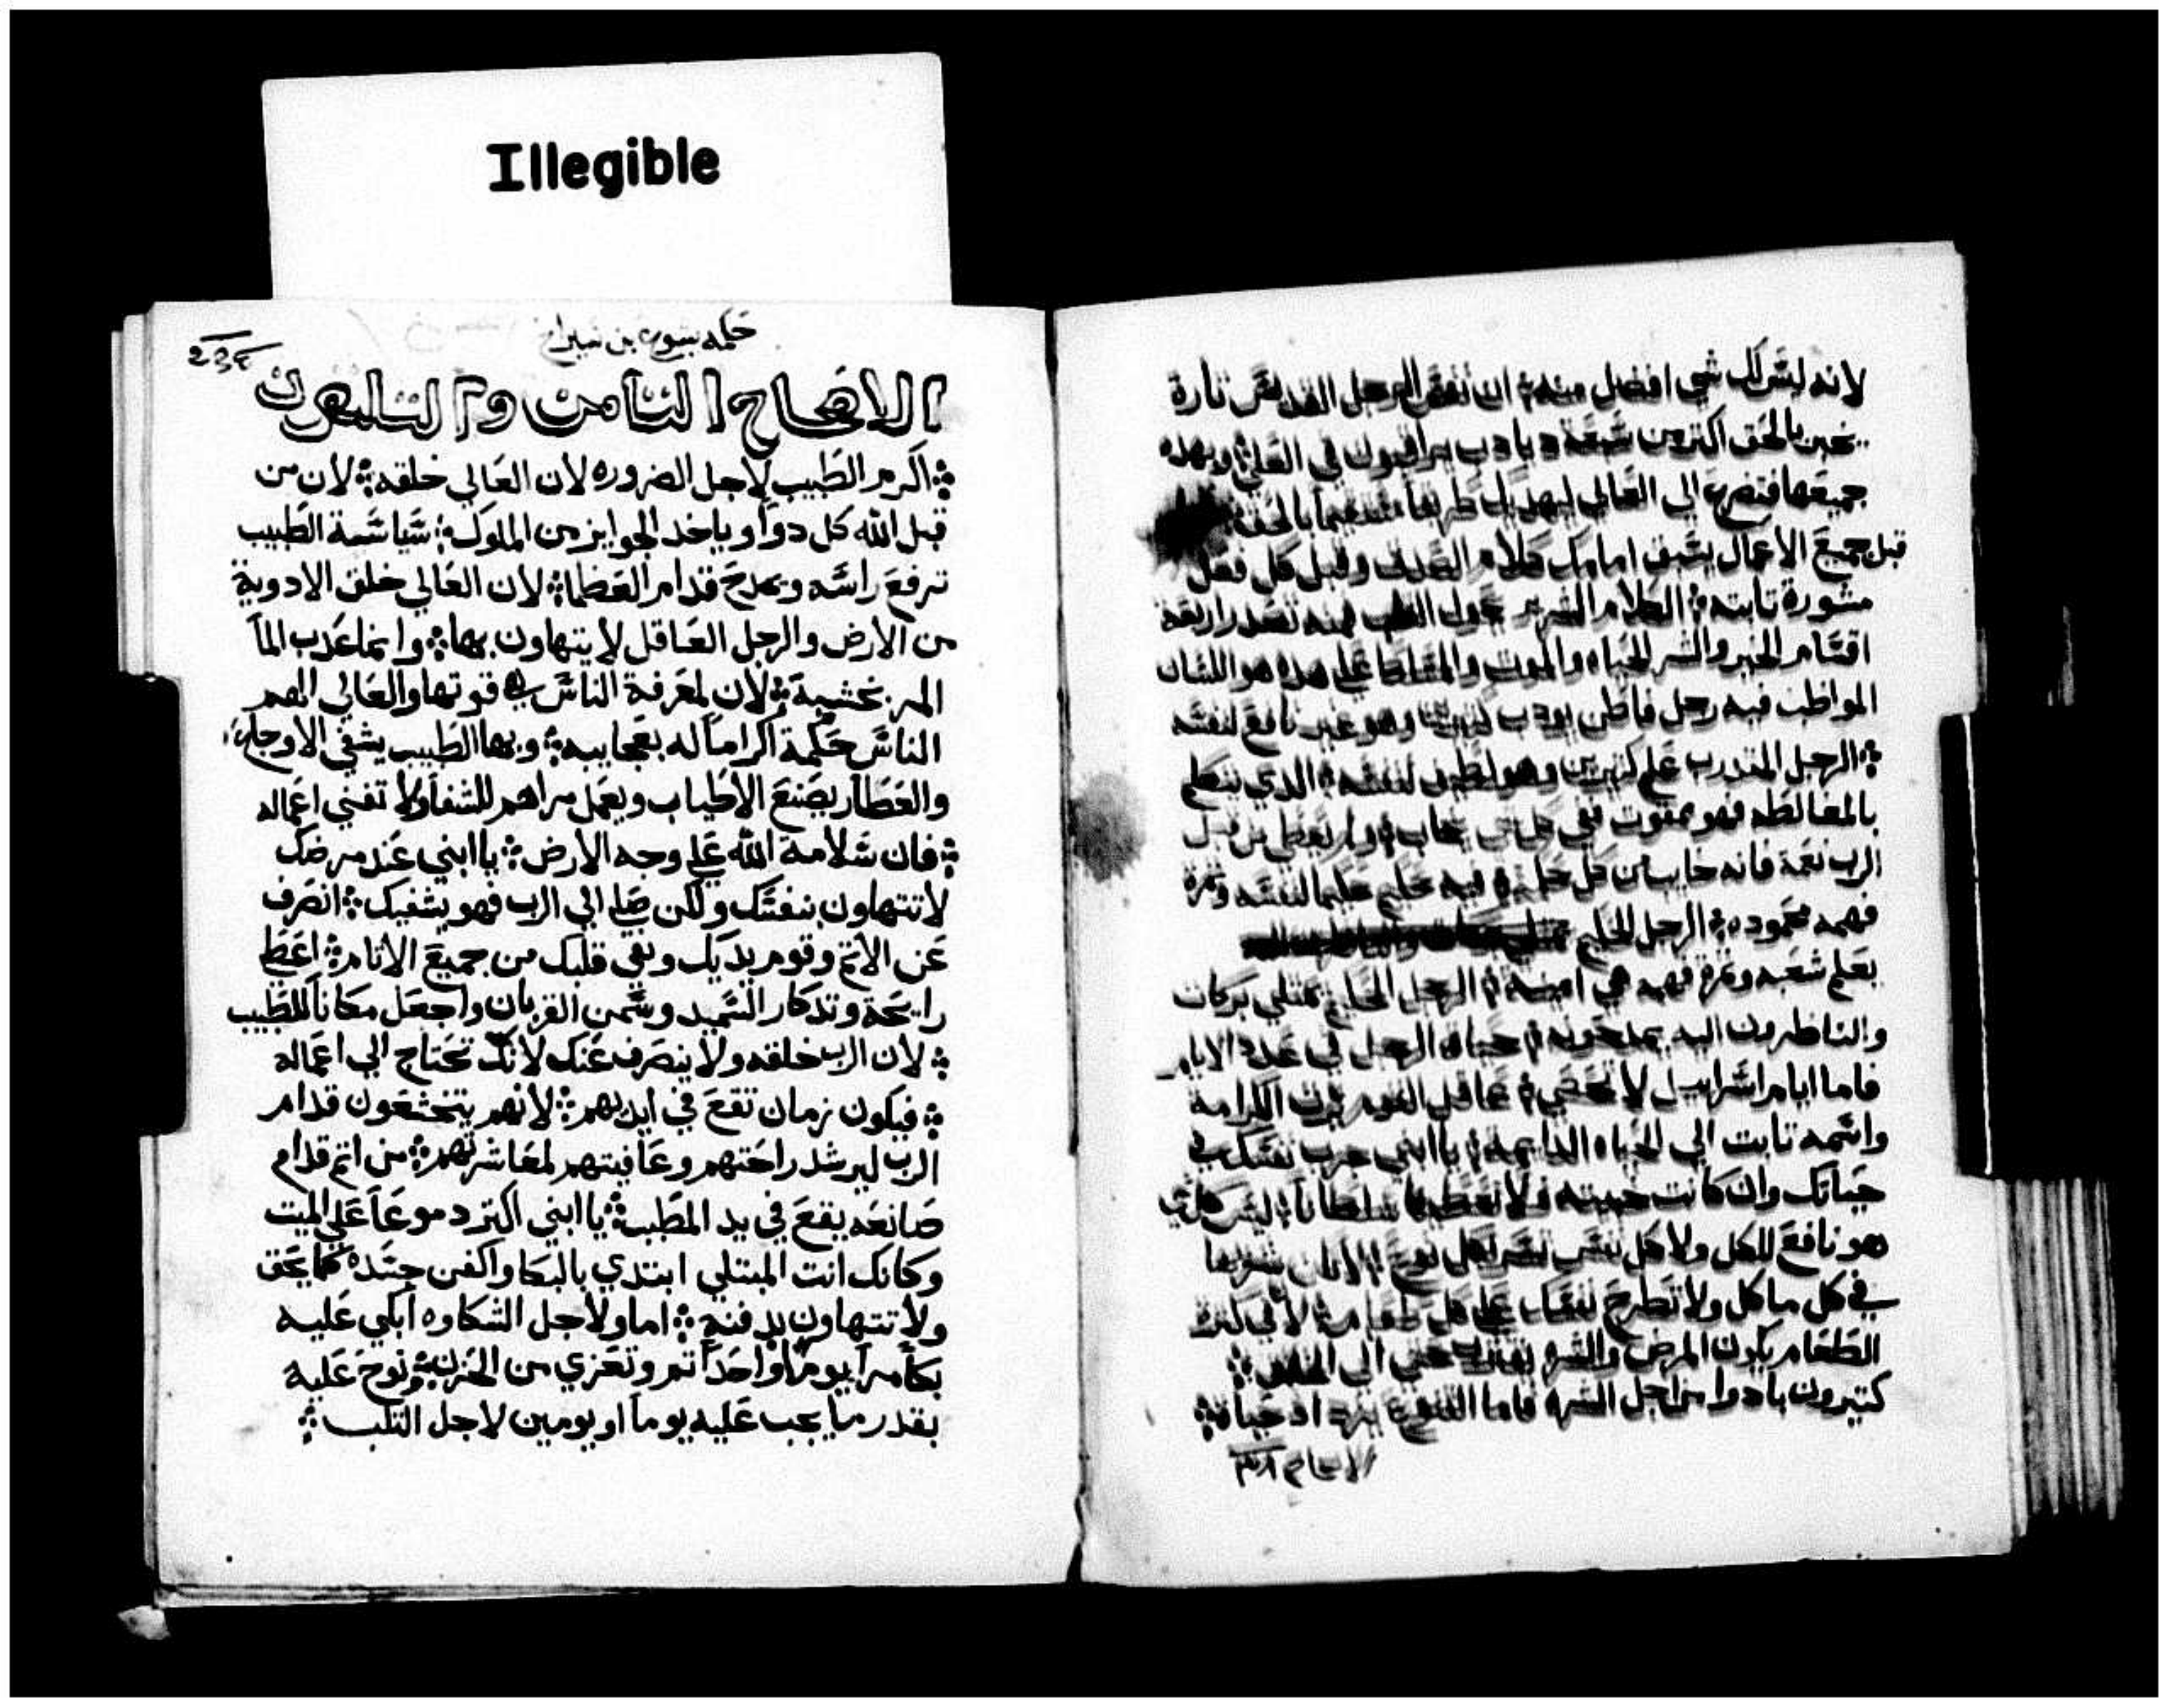 Illegible
لانه ليس لك شي افضل منه ان نفس الرجل القديس تارة
تخبر بالحق اكتر من سبعة ديادب يراقبون في العلي وبهده
جميعها فتضرع الي العالي ليهديك طريقا مستقيما بالحق
قبل جميع الاعمال يسبق امامك كلام الصدق وقبل كل فعل
مشورة تابته الكلام الشرير يحول القلب منه تصدر اربعة
اقسام الخير والشر الحياه والموت والمتسلط علي هده هو اللسان
المواظب فيه رجل فاطن يودب كتيرين وهو غير نافع لنفسه
الرجل المتدرب علم كتيرين وهو لطيف لنفسه الدي يتكلم
بالمغالطه فهو ممقوت ففي كل شي يخاب ولم يعطي من قبل
الرب نعمة فانه خايب من كل حكمة فيه حكيم حكيما لنفسه وتمرة
فهمه محمودة الرجل الحكيم
يعلم شعبه وتمرة فهمه هي امينة الرجل الحكيم يمتلي بركات
والناظرون اليه يمدحونه حياة الرجل في عدد الايام
فاما ايام اسراييل لا تحصي عاقل القوم يرت الكرامة
واسمه تابت الي الحياه الدايمة يا ابني جرب نفسك في
حياتك وان كانت خبيته فلا تعطيها سلطانا ليس كل شي
هو نافع للكل ولا كل نفس تسر بكل نوع لا تكن شرها
في كل ماكل ولا تطرح نفسك علي كل طعام لان في كترة
الطعام يكون المرض والشره يقترب حتي الي المغص
كتيرون بادوا من اجل الشره فاما القنوع يزداد حياة
حكمه يشوع بن سيراخ
الاصحاح التامن والتلتون
اكرم الطبيب لاجل الضروره لان العالي خلقه لان من
قبل الله كل دوا وياخد الجوايز من الملوك سياسة الطبيب
ترفع راسه ويمدح قدام العظما لان العالي خلق الادوية
من الارض والرجل العاقل لا يتهاون بها وانما عدب الما
المر بخشبة لان لمعرفة الناس قوتها والعالي الهم
الناس حكمة اكراما له بعجايبه وبها الطبيب يشفي الاوجاع
والعطار يصنع الاطياب ويعمل مراهم للشفا ولا تفني اعماله
فان سلامة الله علي وجه الارض يا ابني عند مرضك
لا تتهاون بنفسك ولكن صل الي الرب فهو يشفيك انصرف
عن الاتم وقوم يديك ونقي قلبك من جميع الاتام اعط
رايحة وتدكار السميد وسمن القربان واجعل مكانا للطبيب
لان الرب خلقه ولا ينصرف عنك لانك تحتاج الي اعماله
فيكون زمان تقع في ايديهم لانهم يتخشعون قدام
الرب ليرشد راحتهم وعافيتهم لمعاشرتهم من اتم قدام
صانعه يقع في يد المطبب يا ابني اكتر دموعا علي الميت
وكانك انت المبتلي ابتدي بالبكا واكفن جسده كما يحق
ولا تتهاون بدفنه اما ولاجل الشكاوه ابكي عليه
بكا مرا يوما واحدا تم وتعزي من الحزن ونوح عليه
بقدر ما يجب عليه يوما او يومين لاجل التلب